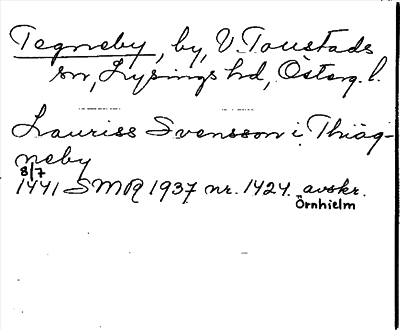 Tegneby, by, V. Toustads
sn, Lysings hd, Österg. l.
Lauriss Svensson i Thiäg-
neby
8/7
1441 SMR 1937 nr. 1424. avskr.
Örnhielm